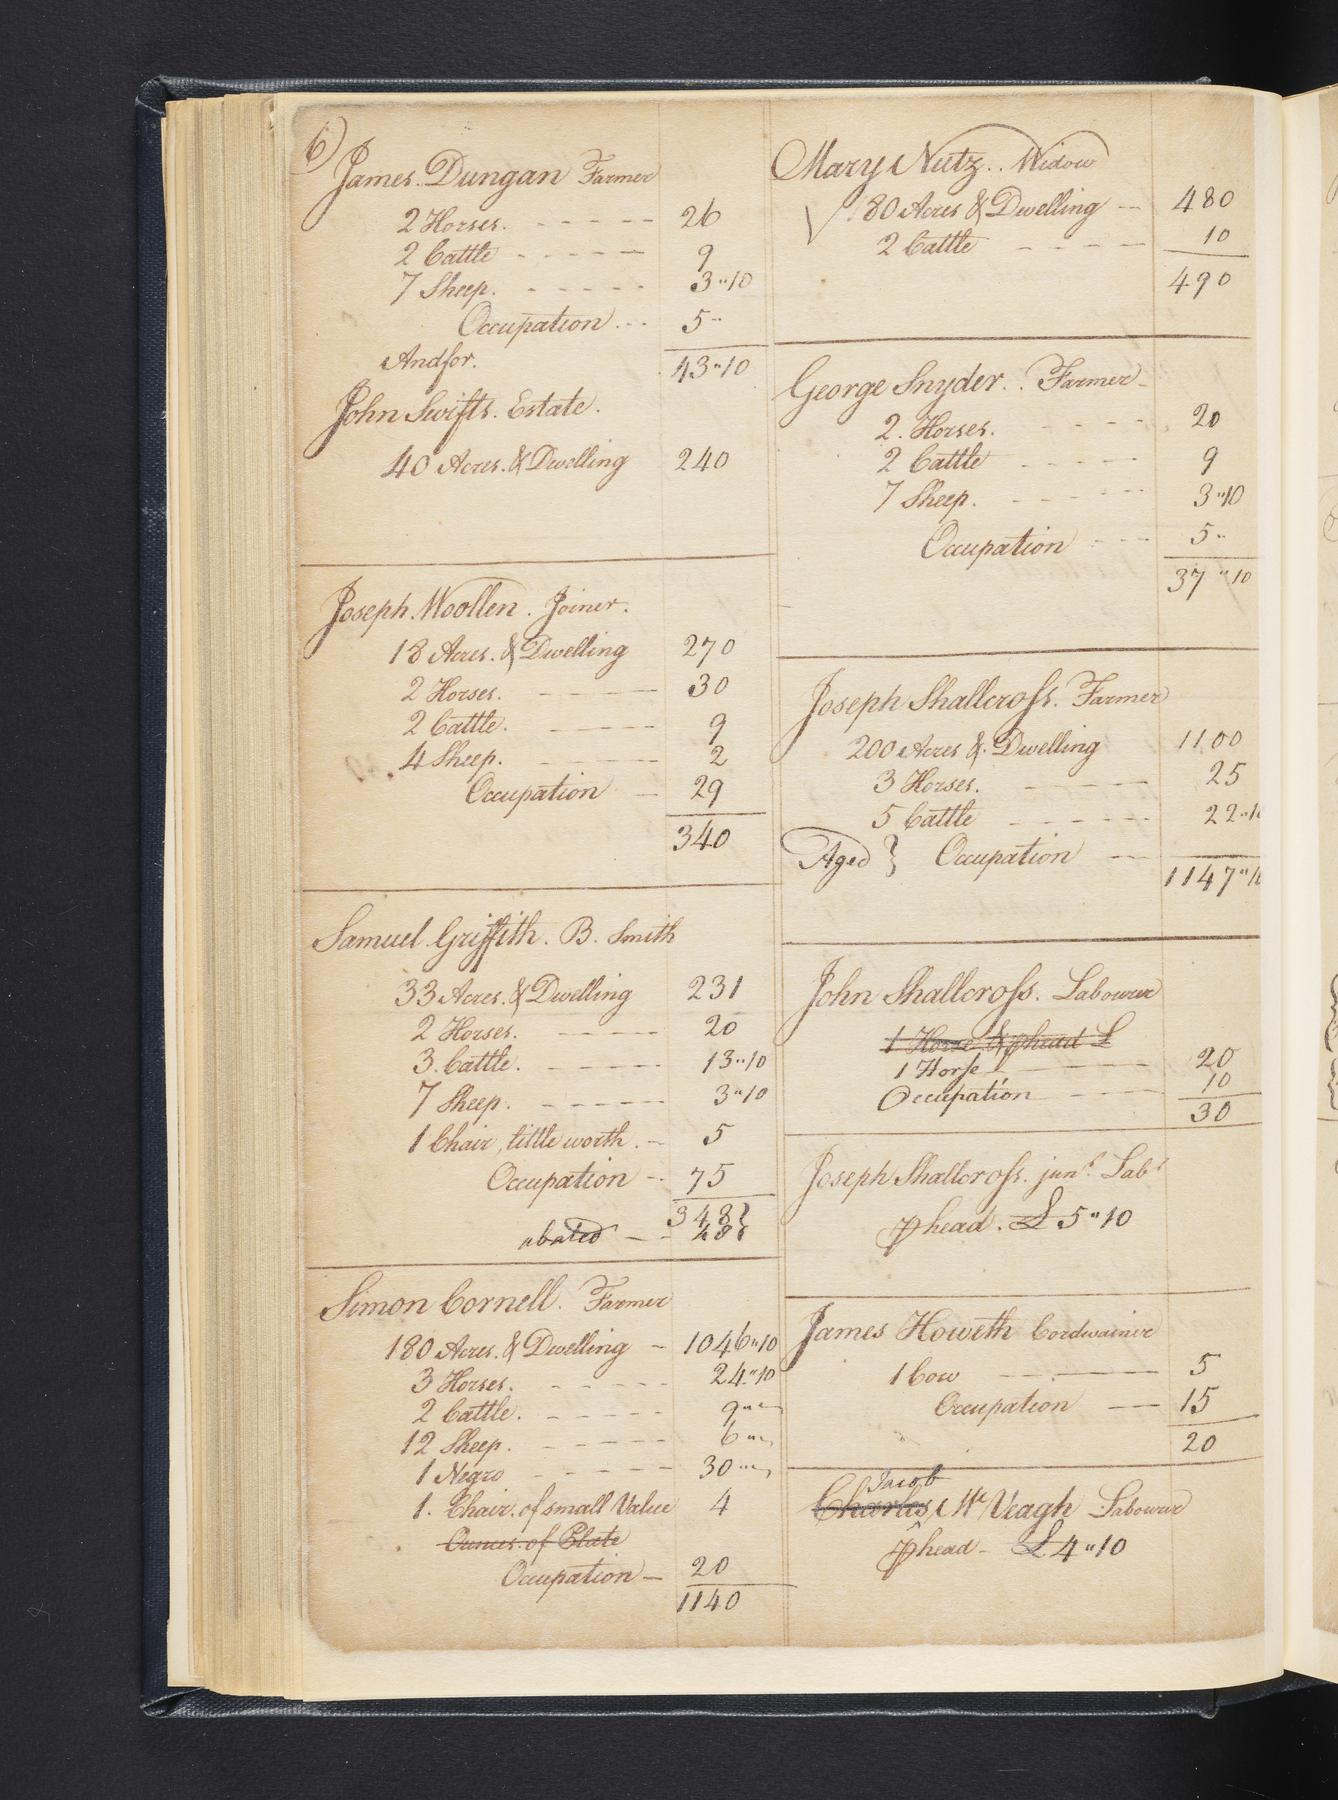 6)
James. Dungan Farmer
2 Horses. - - - - - 26
2 Cattle - - - - - 9
7 Sheep. - - - - - 3"10
Occupation ... 5"
Andfor. 43"10
John Swifts. Estate.
40 Acres. & Dwelling 240
Joseph. Woollen. Joiner.
18 Acres. & Dwelling 270
2 Horses. - - - - 30
2 Cattle. - - - - 9
4 Sheep. - - - - 2
Occupation - 29
340
Samuel. Griffith. B. Smith
33 Acres. & Dwelling 231
2 Horses. - - - - 20
3. Cattle. - - - - 13"10
7 Sheep. - - - - 3"10
1 Chair, little worth. - 5
Occupation - 75
348
abated - - 48
Simon Cornell. Farmer
180 Acres. & Dwelling - 1046"10
3 Horses. - - - - 24"10
2 Cattle. - - - - 9"
12 Sheep. - - - - 6"
1 Negro - - - - 30"
1. Chair. of small Value 4
Ounces. of Plate
Occupation - 20
1140
Mary Nutz.. Widow
80 Acres & Dwelling - 480
2 Cattle - - - - 10
490
George Snyder.. Farmer
2. Horses. - - - - 20
2 Cattle - - - - 9
7 Sheep. - - - - 3"10
Occupation - - - 5"
37"10
Joseph Shallcross. Farmer
200 Acres & Dwelling 1100
3 Horses. - - - - 25
5 Cattle - - - - 22"10
Aged } Occupation -
1147"10
John Shallcross. Labourer
1 Horse & phead £
1 Horse - - - - 20
Occupation - - - 10
30
Joseph Shallcross. junr. Labr
phead. £ 5"10
James Howeth Cordwainer
1 Cow - - - - 5
Occupation - 15
20
Jacob
Charles McVeagh Labourer
phead - £ 4"10